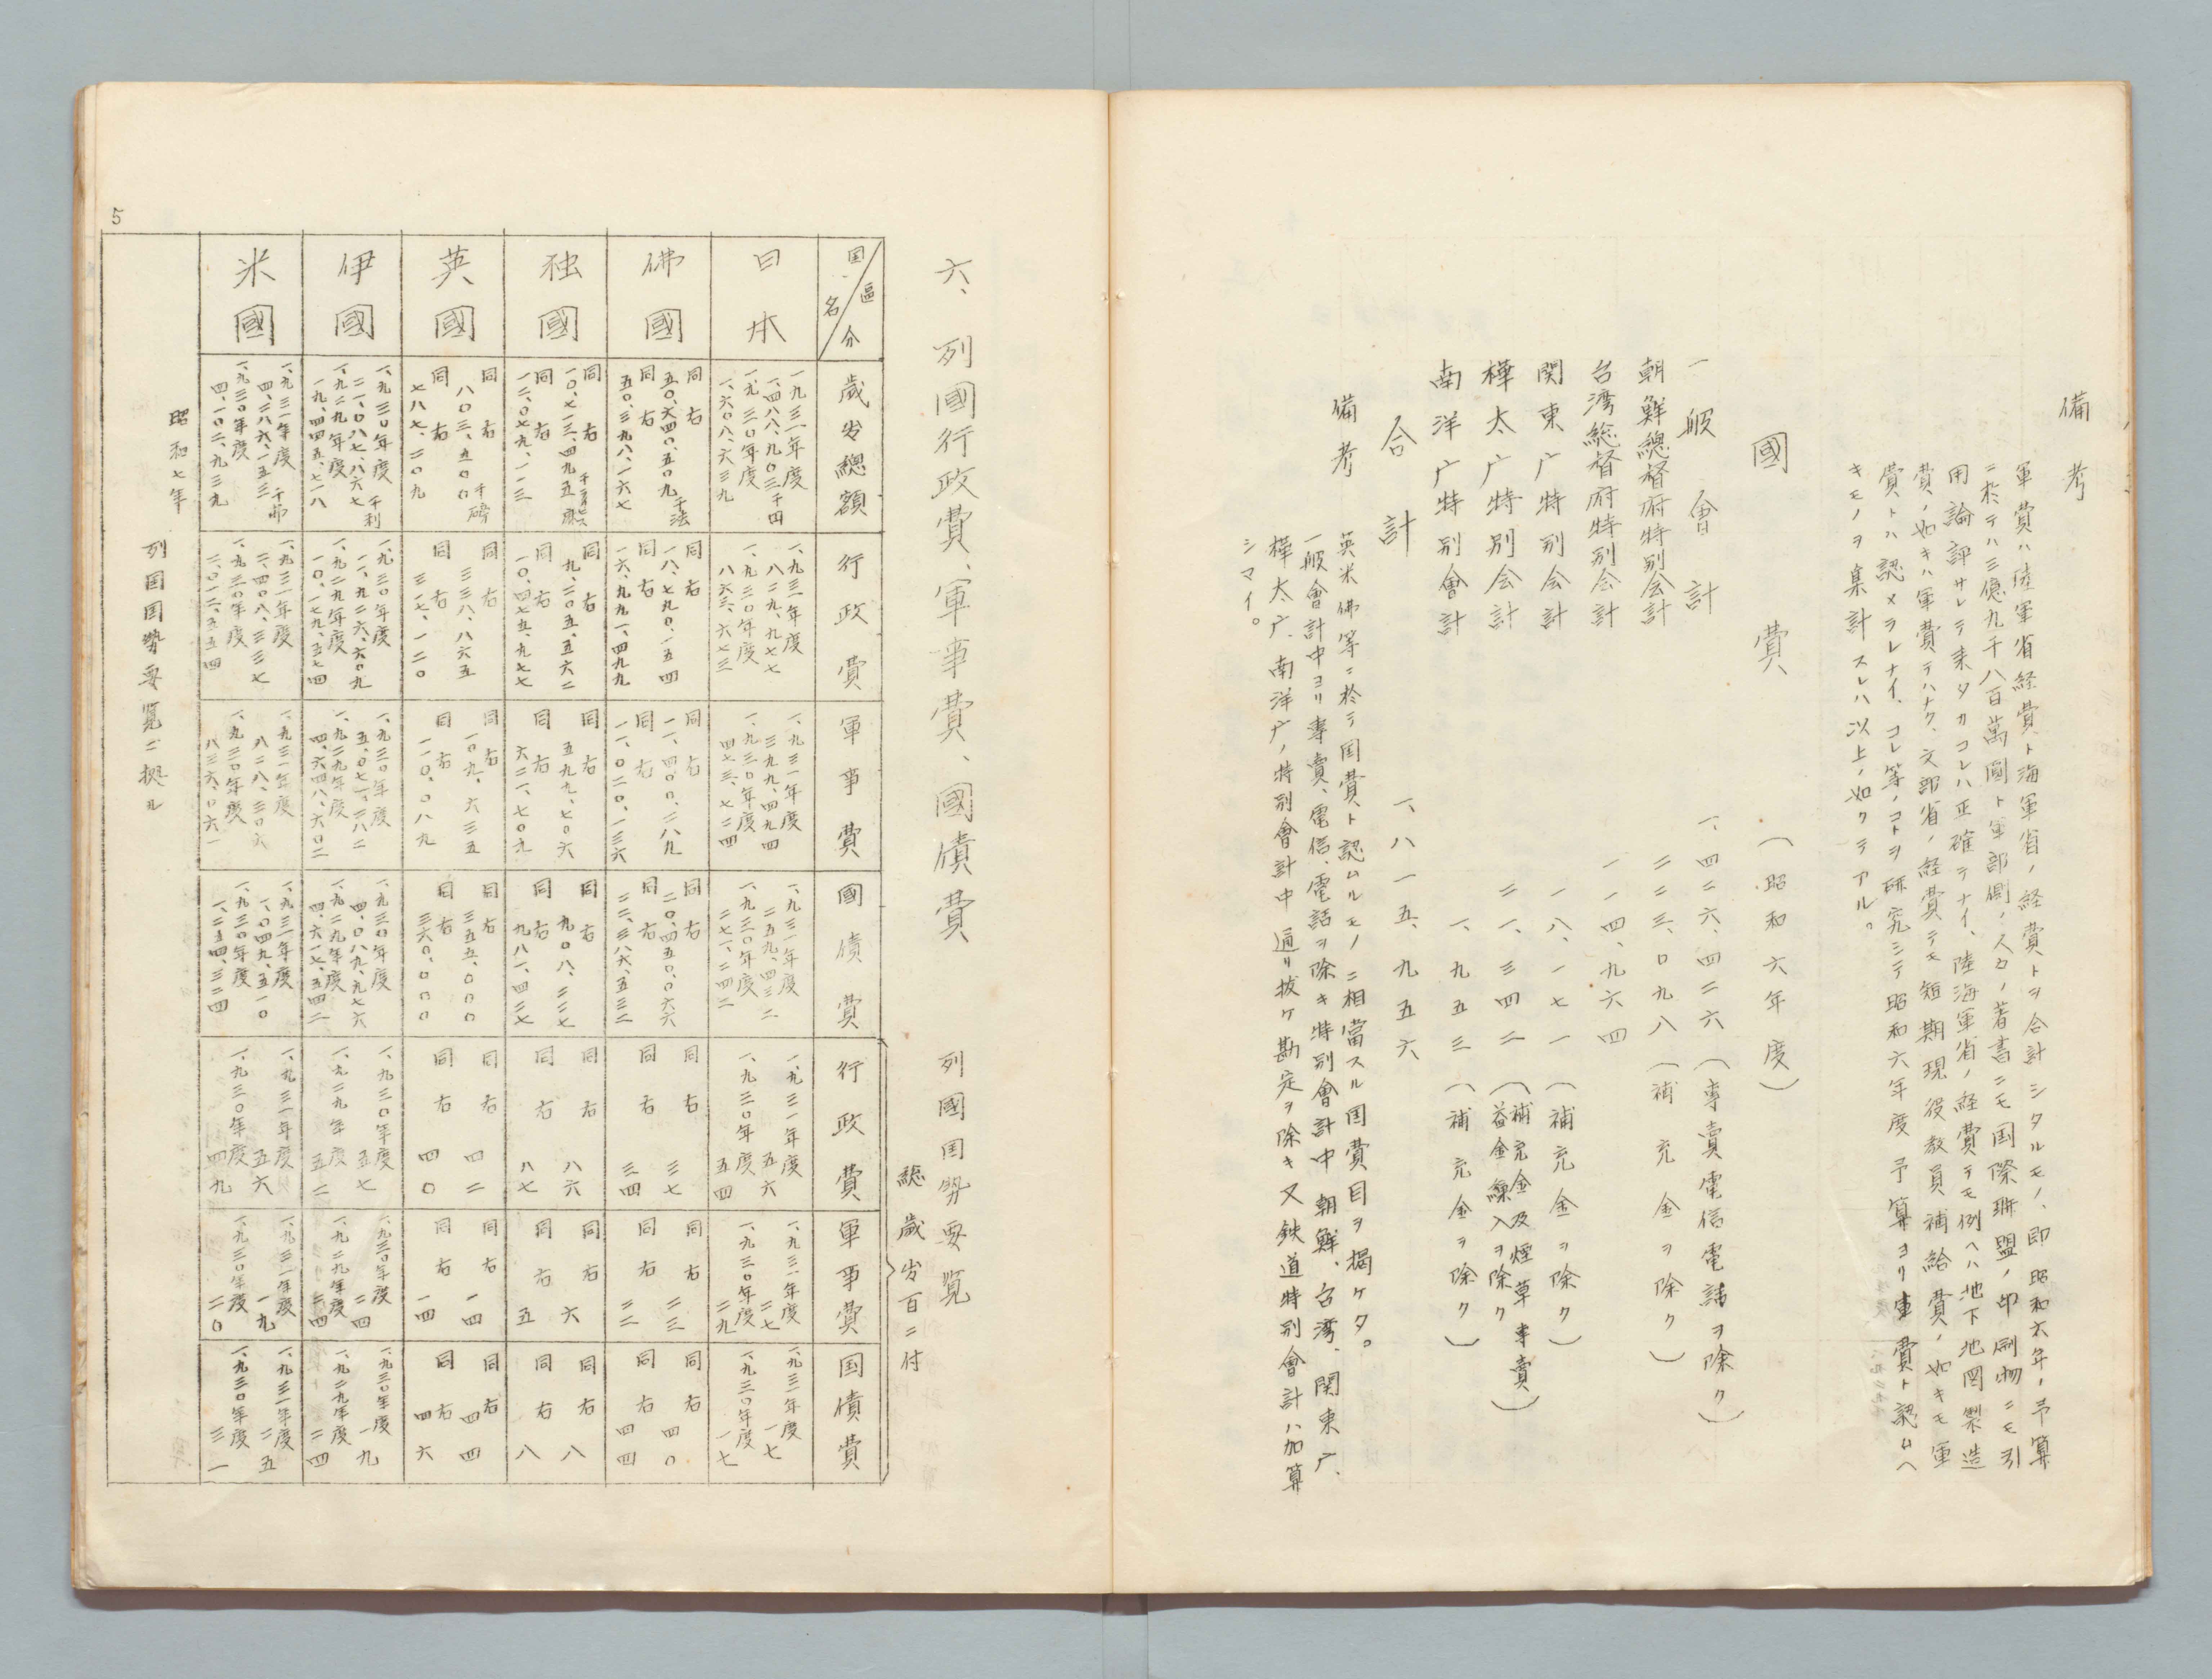 備考
軍費ハ陸軍省経費ト海軍省ノ経費トヲ合計シタルモノ、即昭和六年ノ予算
ニ於テハ三億九千八百萬圓ト軍部側ノ人々ノ著書ニモ国際聯盟ノ印刷物ニモ引
用論評サレテ来タカコレハ正確テナイ、陸海軍省ノ経費テモ例ヘハ地下地図製造
費ノ如キハ軍費テハナク、文部省ノ経費テモ短期現役教員補給費ノ如キモ軍
費トハ認メラレナイ、コレ等ノコトヲ研究シテ昭和六年度予算ヨリ軍費ト認ムヘ
キモノヲ集計スレハ以上ノ如クテアル。
國費
(昭和六年度)
一般會計 一、四二六、四二六(専賣電信電話ヲ除ク)
朝鮮總督府特別会計 二三三、〇九八(補充金ヲ除ク)
台湾総督府特別会計 一一四、九六四
関東广特別会計 一八、一七一(補充金ヲ除ク)
樺太广特別会計 二一、三四二(補充金及煙草専賣益金繰入ヲ除ク)
南洋广特別會計 一、九五三(補充金ヲ除ク)
合計 一、八一五、九五六
備考
英米佛等ニ於テ国費ト認ムルモノニ相當スル国費目ヲ掲ケタ。
一般會計中ヨリ専賣、電信、電話ヲ除キ特別會計中朝鮮、台湾、関東广、
樺太广、南洋广ノ特別會計中通リ抜ケ勘定ヲ除キ又鉄道特別會計ハ加算
シマイ。
六、列國行政費、軍事費、國債費
列國国勢要覧
総歳出百ニ付
国名 區分
歳出總額
行政費
軍事費
國債費
行政費
軍事費
国債費
日本
一九三一年度
一、四八八、九〇三千円
一九三〇年度
一、六〇八、六三九
一、九三一年度
八二九、九七七
一、九三〇年度
八六三、六七三
一、九三一年度
三九九、四九四
一、九三〇年度
四七三、七二四
一、九三一年度
二五九、四三二
一、九三〇年度
二七一、二四二
一、九三一年度 五六
一、九三〇年度 五四
一、九三一年度 二七
一、九三〇年度 二九
一、九三一年度 一七
一、九三〇年度 一七
佛國
同右
五〇、六四〇、五〇九千法
同右
五〇、三九八、一六七
同右
一八、七九〇、一五四
同右
一六、九九一、四九九
同右
一一、四〇〇、二八九
同右
一一、〇二〇、一三六
同右
二〇、四五〇、〇六六
同右
二二、三八六、五三二
同右 三七
同右 三四
同右 二三
同右 二二
同右 四〇
同右 四四
独國
同右
一〇、七一三、四九五
同右
一二、〇七九、一一三
同右
九、二〇五、五六二
同右
一〇、四七五、九七七
同右
五九九、七〇六
同右
六二一、七〇九
同右
九〇八、二二七
同右
九八一、四二七
同右 八六
同右 八七
同右 六
同右 五
同右 八
同右 八
英國
同右
八〇三、五〇〇千磅
同右
七八七、二〇九
同右
三三八、八六五
同右
三一七、一二〇
同右
一〇九、六三五
同右
一一〇、〇八九
同右
三五五、〇〇〇
同右
三六〇、〇〇〇
同右 四二
同右 四〇
同右 一四
同右 一四
同右 四四
同右 四六
伊國
一、九三〇年度
二一、〇八七、八六七千利
一、九二九年度
一九、四四五、七一八
一、九三〇年度
一一、九二六、六〇九
一、九二九年度
一〇、一七九、五七四
一、九三〇年度
五、〇七一、二八二
一、九二九年度
四、六四八、六〇二
一、九三〇年度
四、〇八九、九七六
一、九二九年度
四、六一七、五四二
一、九三〇年度 五七
一、九二九年度 五二
一、九三〇年度 二四
一、九二九年度 二四
一、九三〇年度 一九
一、九二九年度 二四
米國
一、九三一年度
四、二八六、一五三千弗
一、九三〇年度
四、一〇二、九三九
一、九三一年度
二、四〇八、三三七
一、九三〇年度
二、〇一二、五五四
一、九三一年度
八二八、三〇六
一、九三〇年度
八三六、〇六一
一、九三一年度
一、〇四九、五一〇
一、九三〇年度
一、二五四、三二四
一、九三一年度 五六
一、九三〇年度 四九
一、九三一年度 一九
一、九三〇年度 二〇
一、九三一年度 二五
一、九三〇年度 三一
昭和七年 列国国勢要覧ニ拠ル
5